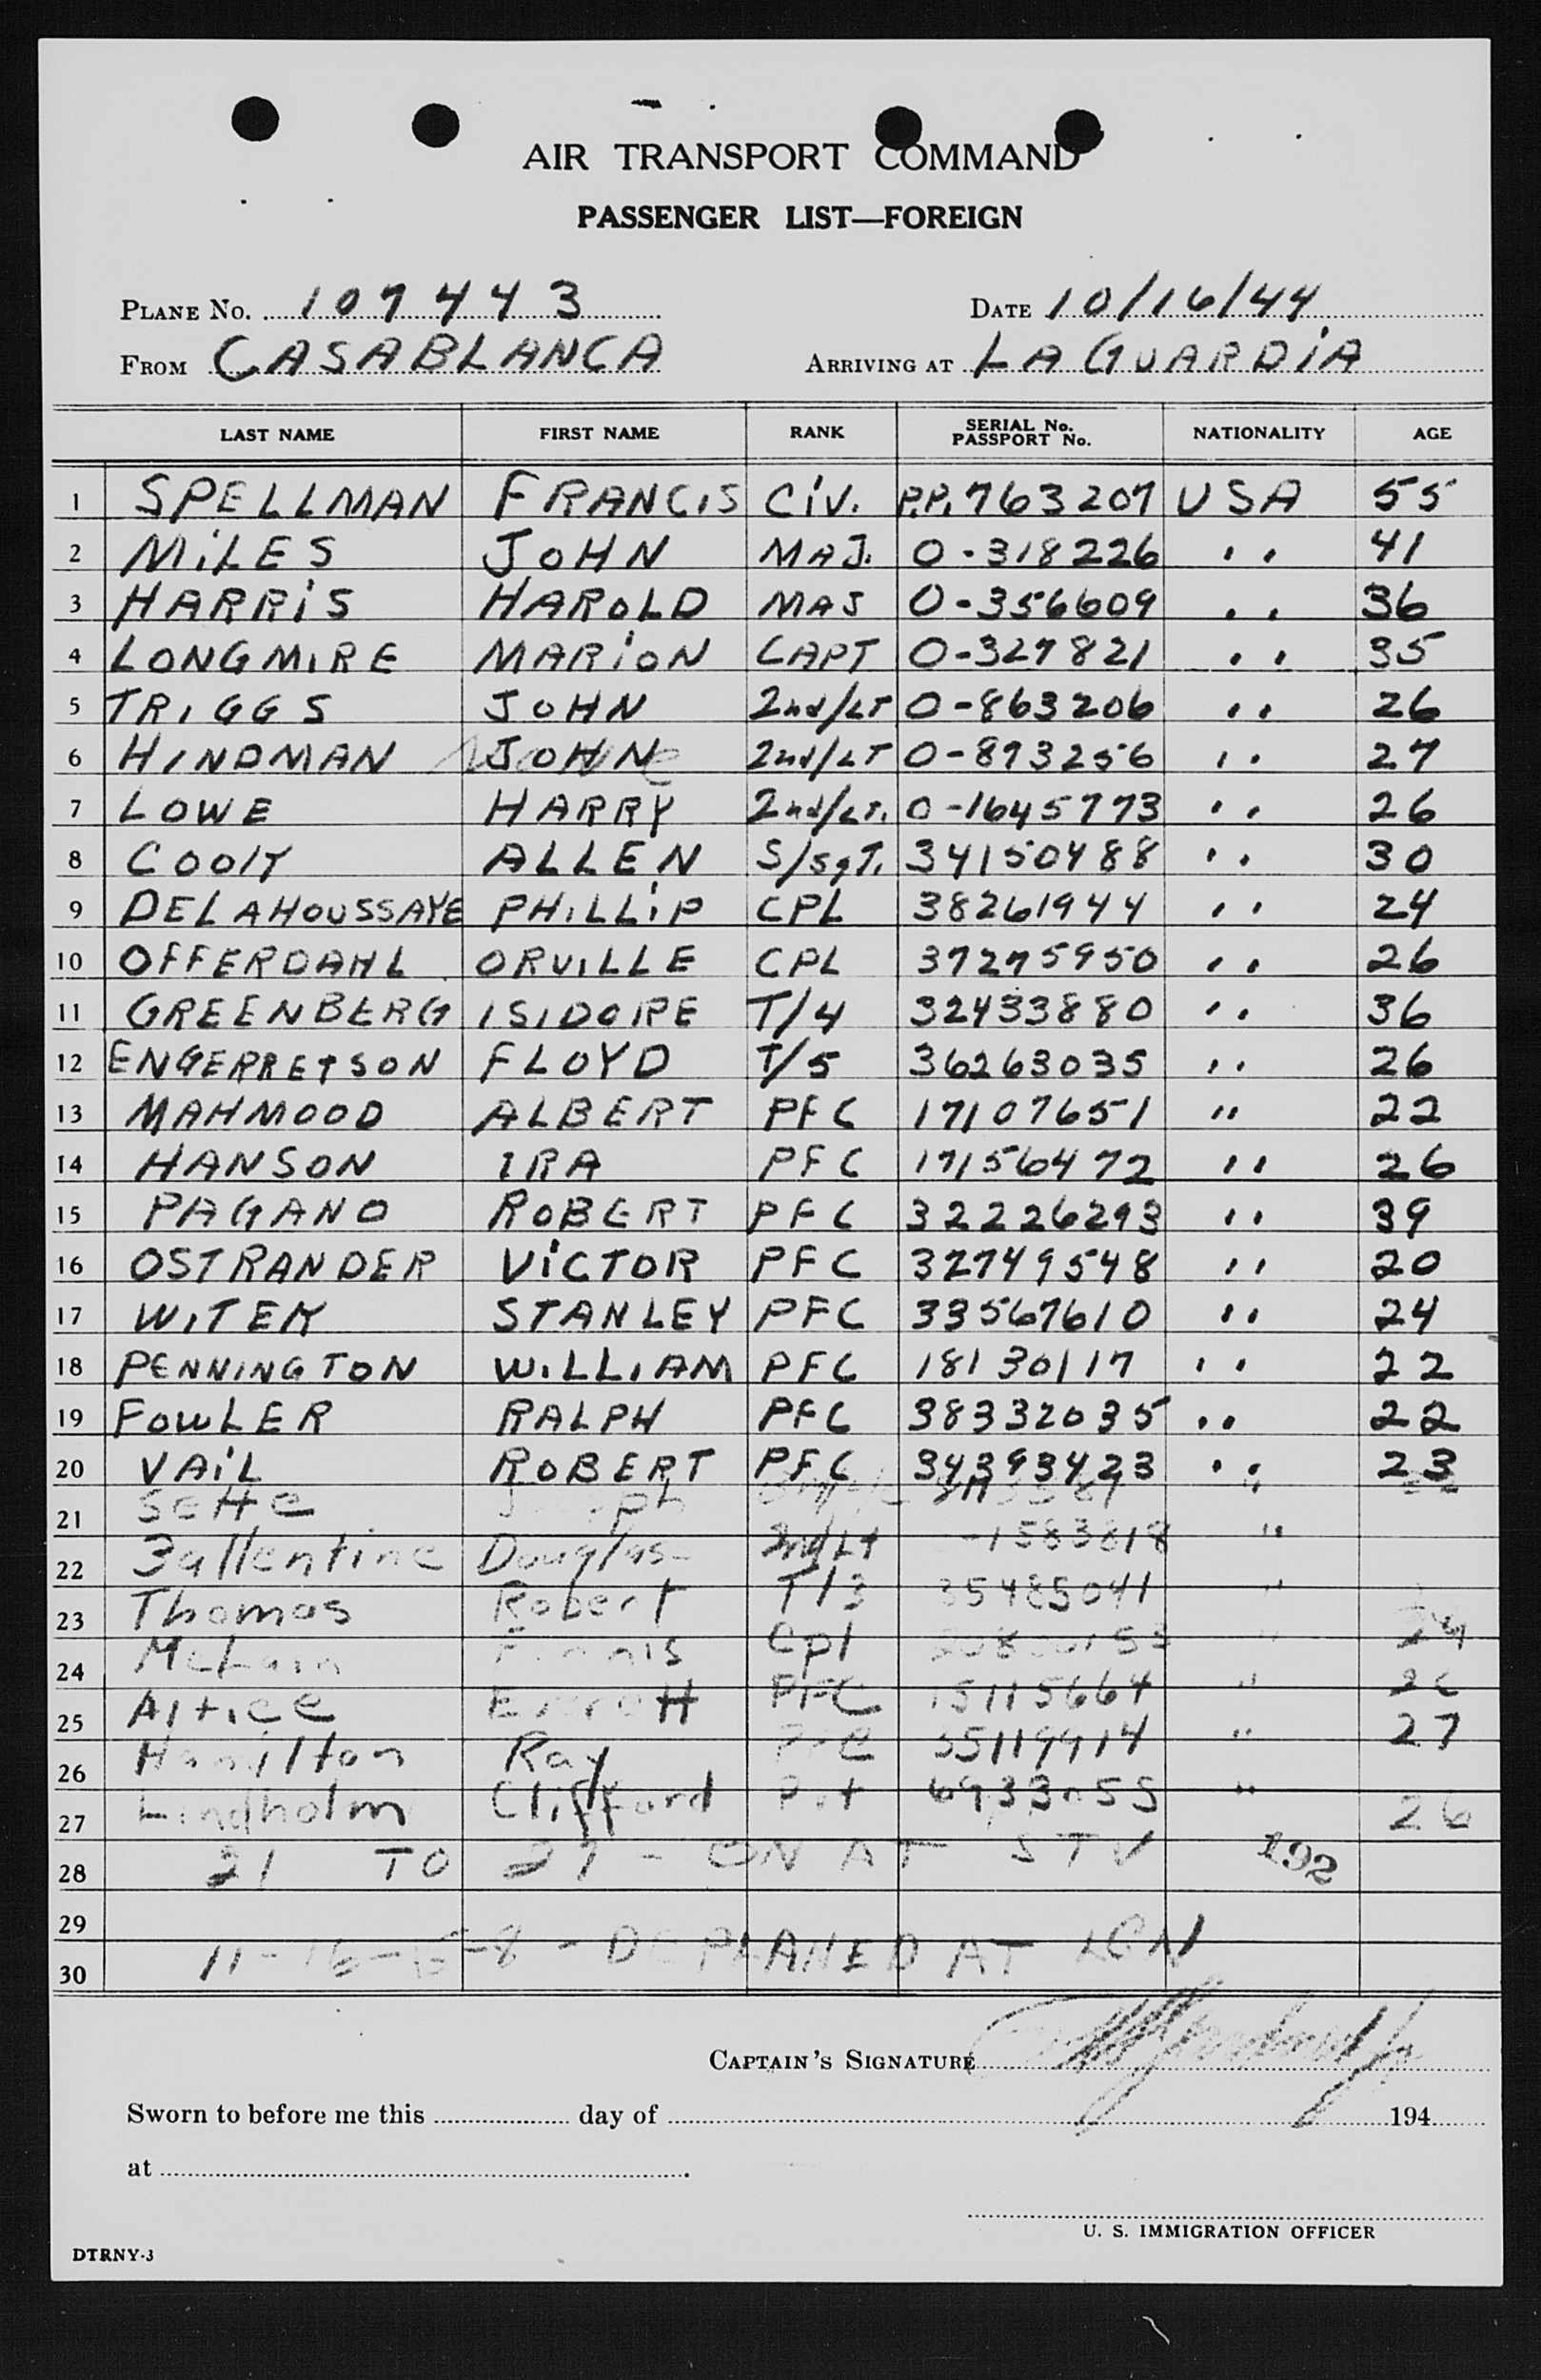 AIR TRANSPORT COMMAND
PASSENGER LIST—FOREIGN
PLANE No. 107443 DATE 10/16/44
FROM CASABLANCA ARRIVING AT LA GUARDIA
LAST NAME FIRST NAME RANK SERIAL No. PASSPORT No. NATIONALITY AGE
1 SPELLMAN FRANCIS CIV. P.P. 763207 USA 55
2 MILES JOHN MAJ. O-318226 " 41
3 HARRIS HAROLD MAJ O-356609 " 36
4 LONGMIRE MARION CAPT O-327821 " 35
5 TRIGGS JOHN 2nd/LT O-863206 " 26
6 HINDMAN JOHN 2nd/LT O-873256 " 27
7 LOWE HARRY 2nd/LT. O-1645773 " 26
8 COOK ALLEN S/SgT. 34150488 " 30
9 DELAHOUSSAYE PHILLIP CPL 38261944 " 24
10 OFFERDAHL ORVILLE CPL 37275950 " 26
11 GREENBERG ISIDORE T/4 32433880 " 36
12 ENGERRETSON FLOYD T/5 36263035 " 26
13 MAHMOOD ALBERT PFC 17107651 " 22
14 HANSON IRA PFC 17156472 " 26
15 PAGANO ROBERT PFC 32226293 " 39
16 OSTRANDER VICTOR PFC 32749548 " 20
17 WITEK STANLEY PFC 33567610 " 24
18 PENNINGTON WILLIAM PFC 18130117 " 22
19 FOWLER RALPH PFC 38332035 " 22
20 VAIL ROBERT PFC 34393423 " 23
21 Sette "
22 Ballentine Douglas 2nd Lt -1583818 "
23 Thomas Robert T/3 35485041 "
24 McLain Cpl " 24
25 Altice Everett PFC 15115664 " 26
26 Hamilton Ray PFC 35119914 " 27
27 Lindholm Clifford Pvt " 26
28 21 TO 27 - ON AT STV 192
29
30 11-16- -8 - DEPLANED AT LGN
CAPTAIN'S SIGNATURE
Sworn to before me this day of 194
at
U. S. IMMIGRATION OFFICER
DTRNY-3